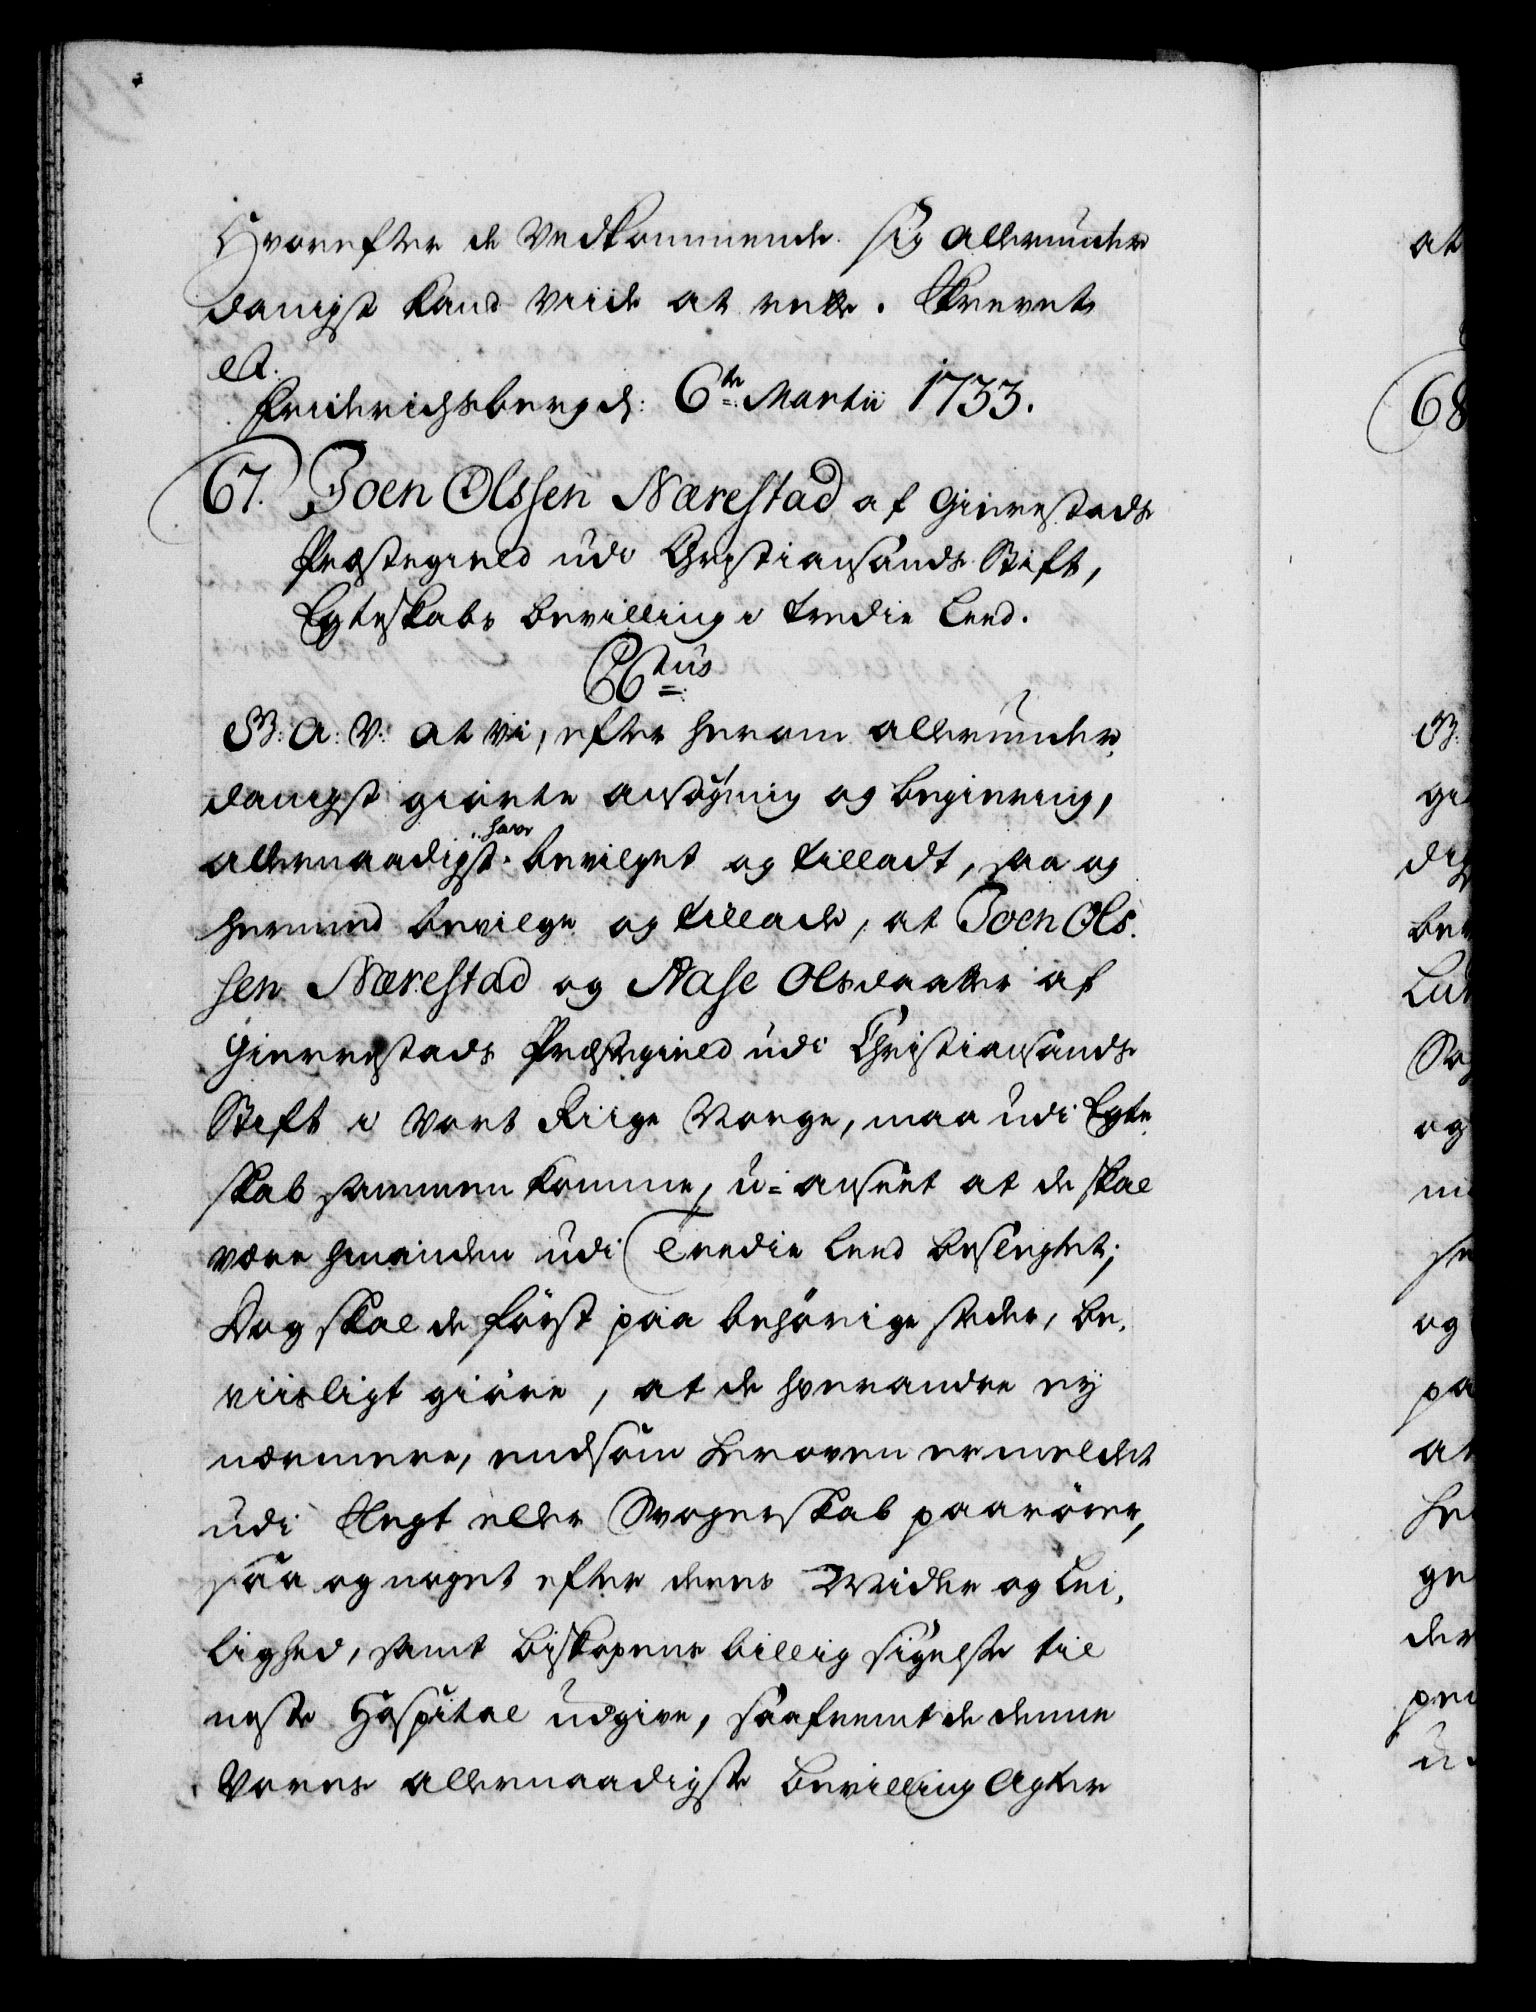 Hvorefter de Vedkommende sig allerunder
danigst kand viide at rette. Skrevet
et.
Friderichsberg d: 6te Martii 1733.
67. Joen Olssen Nærestad af Gierrestads
Præstegield udi Christiansands Stift,
Egteskabs bevilling i tredie Leed.
C6tus
G: A: V: at vi, efter herom allerunder,
danigst giorte ansøgning og begiering,
allernaadigst have bevilget og tilladt, saa og
hermed bevilge og tillade, at Joen Ols.
sen Nærestad og Aase Olsdaatter af
Gierrestads Præstegield udi Christiansands
Stift i Vort Riige Norge, maa udi Egte
skab sammen komme, u-anseet at de skal
være hinanden udi Tredie Leed beslegtet;
Dog skal de først paa behørige steder, be,
viisligt giøre, at de hverandre ey
nærmere, end som beroven er meldet
udi Slegt eller Svogerskab paarører,
saa og noget efter deres Midler og Lei,
lighed, samt Biskopens billig sigelse til
neste Hospital udgive, saafremt de denne
Vores allernaadigste Bevilling agter
at
68
G:
gi
dig
be
Lu
So
og
m
se
og
pa
at
he
ge
der
pr
u